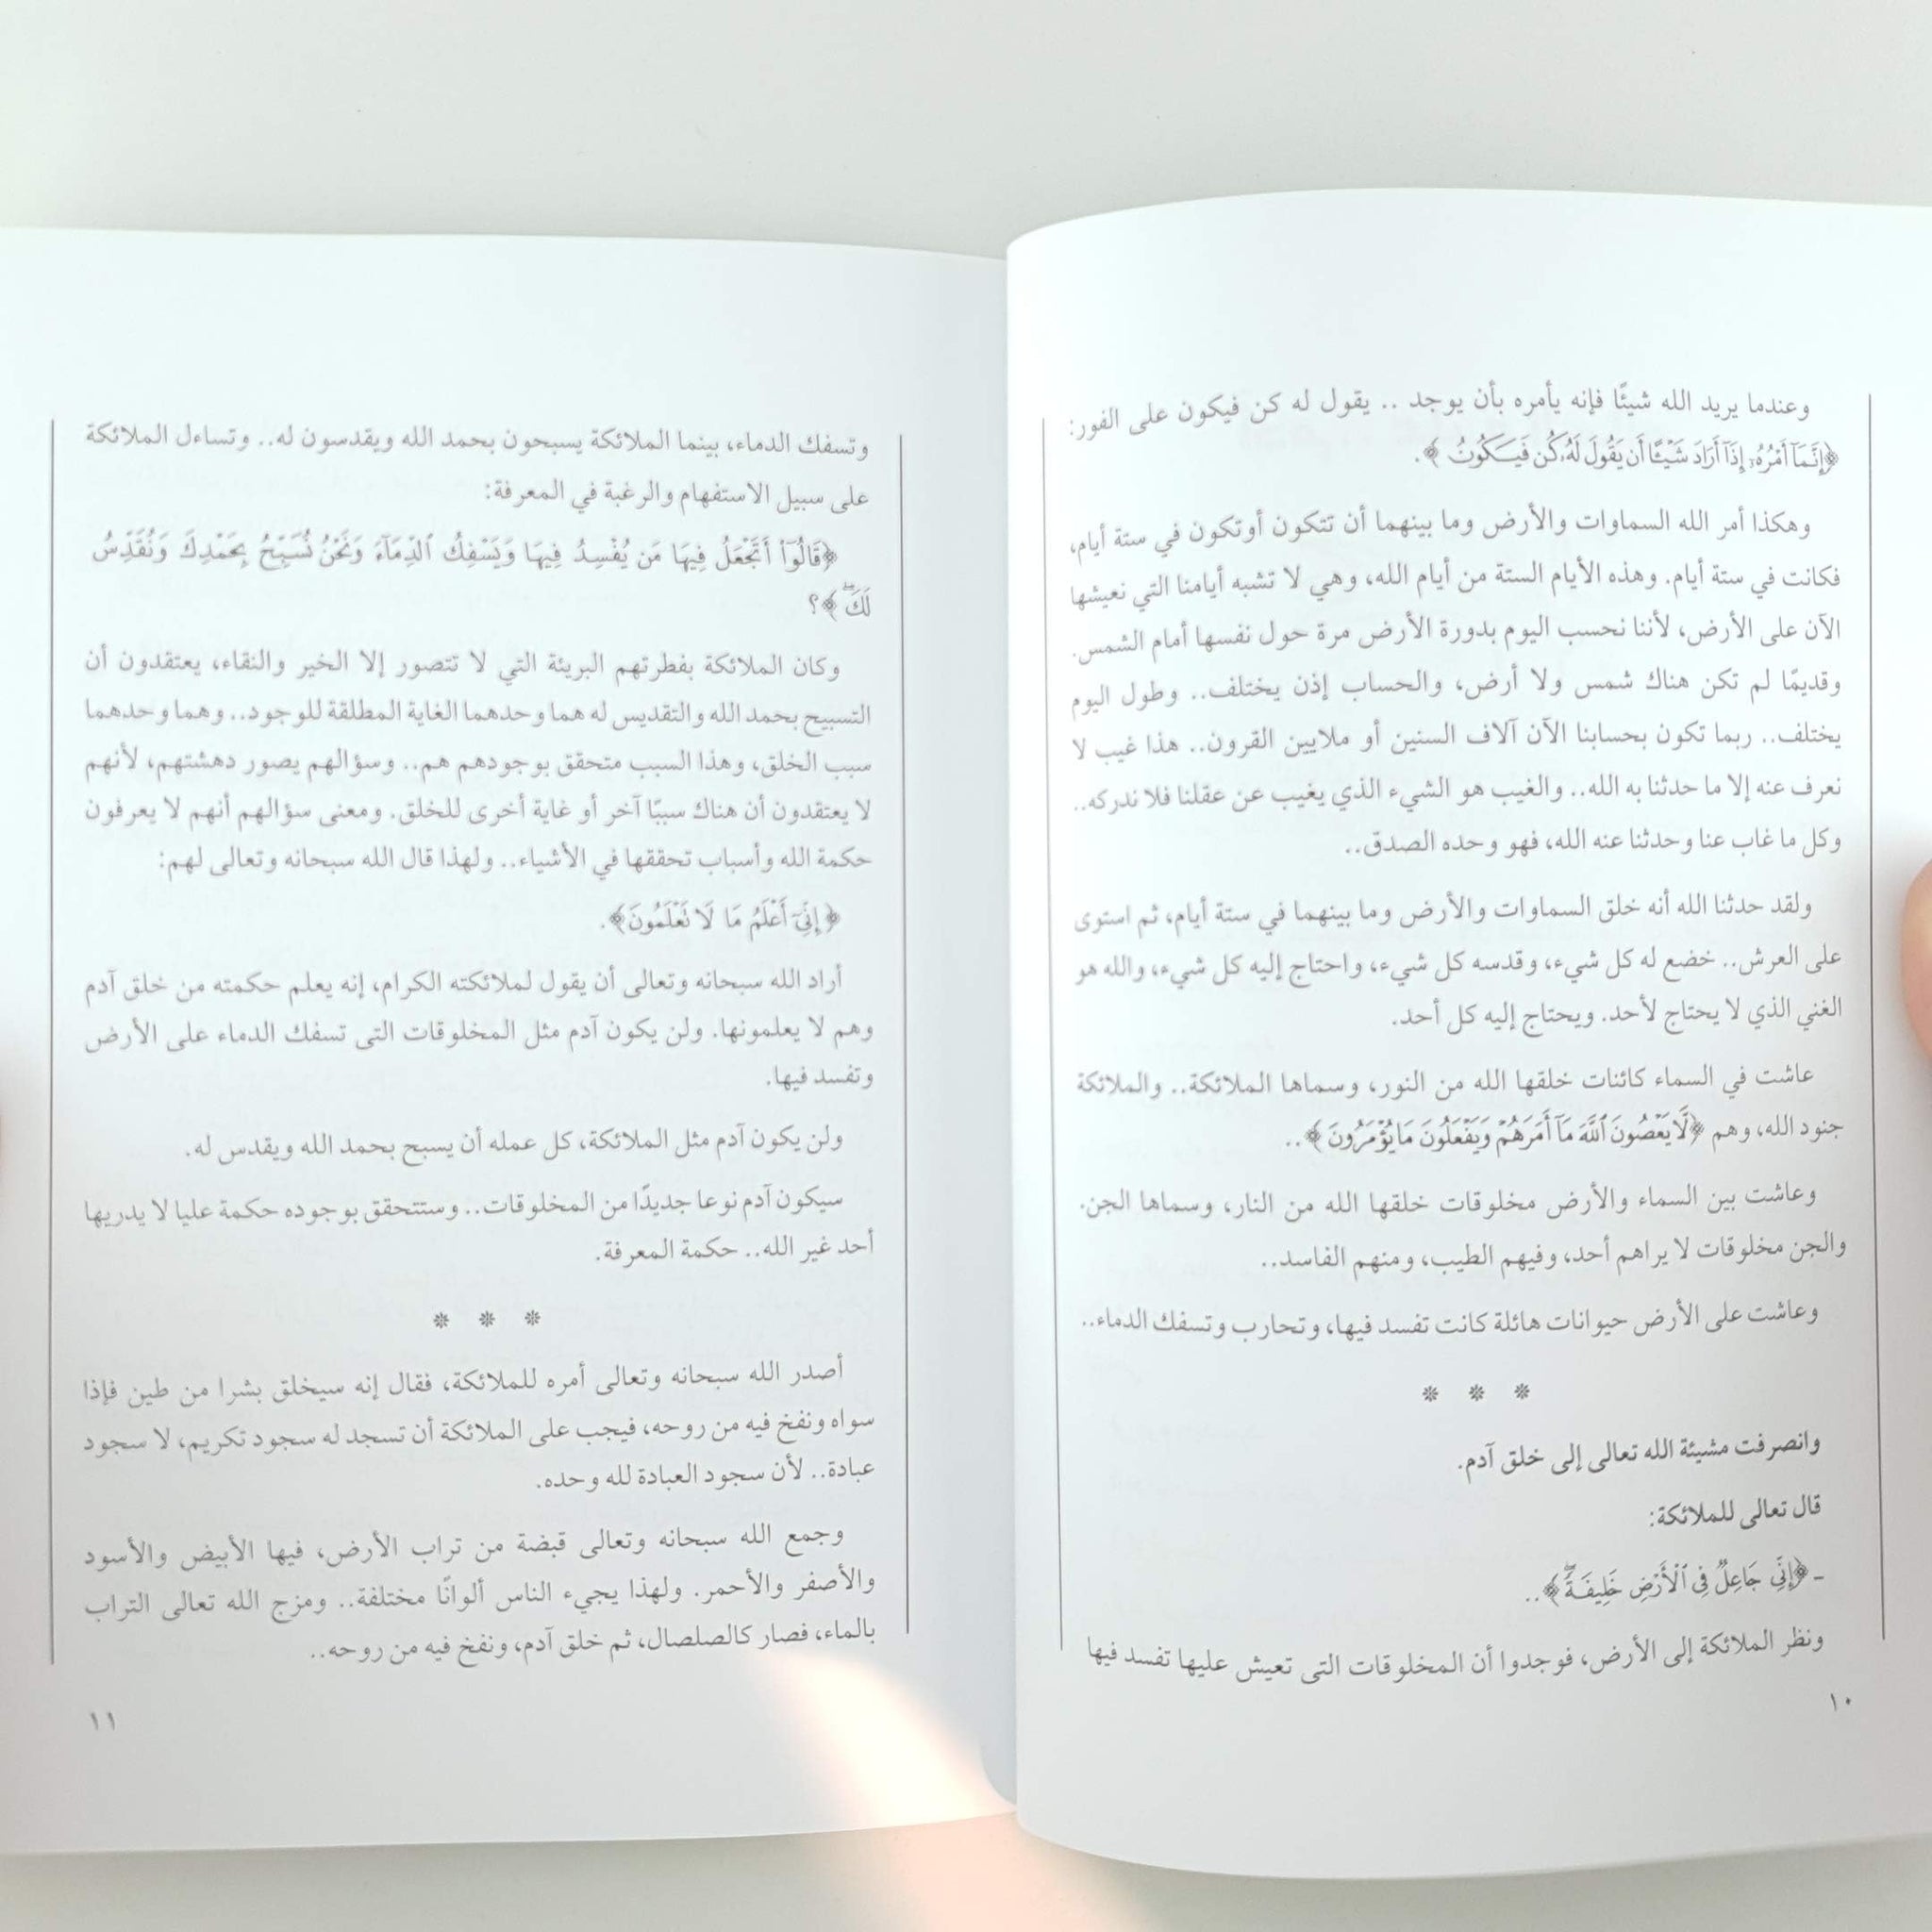 وعندما يريد الله شيئًا فإنه يأمره بأن يوجد .. يقول له كن فيكون على الفور:
﴿إِنَّمَآ أَمْرُهُۥٓ إِذَآ أَرَادَ شَيْـًٔا أَن يَقُولَ لَهُۥ كُن فَيَكُونُ ﴾.
وهكذا أمر الله السماوات والأرض وما بينهما أن تتكون أوتكون في ستة أيام،
فكانت في ستة أيام. وهذه الأيام الستة من أيام الله، وهي لا تشبه أيامنا التي نعيشها
الآن على الأرض، لأننا نحسب اليوم بدورة الأرض مرة حول نفسها أمام الشمس.
وقديمًا لم تكن هناك شمس ولا أرض، والحساب إذن يختلف.. وطول اليوم
يختلف.. ربما تكون بحسابنا الآن آلاف السنين أو ملايين القرون.. هذا غيب لا
نعرف عنه إلا ما حدثنا به الله.. والغيب هو الشيء الذي يغيب عن عقلنا فلا ندركه..
وكل ما غاب عنا وحدثنا عنه الله، فهو وحده الصدق..
ولقد حدثنا الله أنه خلق السماوات والأرض وما بينهما في ستة أيام، ثم استوى
على العرش.. خضع له كل شيء، وقدسه كل شيء، واحتاج إليه كل شيء، والله هو
الغني الذي لا يحتاج لأحد. ويحتاج إليه كل أحد.
عاشت في السماء كائنات خلقها الله من النور، وسماها الملائكة.. والملائكة
جنود الله، وهم ﴿لَّا يَعْصُونَ ٱللَّهَ مَآ أَمَرَهُمْ وَيَفْعَلُونَ مَا يُؤْمَرُونَ ﴾..
وعاشت بين السماء والأرض مخلوقات خلقها الله من النار، وسماها الجن.
والجن مخلوقات لا يراهم أحد، وفيهم الطيب، ومنهم الفاسد..
وعاشت على الأرض حيوانات هائلة كانت تفسد فيها، وتحارب وتسفك الدماء..
* * *
وانصرفت مشيئة الله تعالى إلى خلق آدم.
قال تعالى للملائكة:
ـ ﴿إِنِّي جَاعِلٌ فِي ٱلْأَرْضِ خَلِيفَةً ۖ﴾..
ونظر الملائكة إلى الأرض، فوجدوا أن المخلوقات التى تعيش عليها تفسد فيها
١٠
وتسفك الدماء، بينما الملائكة يسبحون بحمد الله ويقدسون له.. وتساءل الملائكة
على سبيل الاستفهام والرغبة في المعرفة:
﴿قَالُوٓا۟ أَتَجْعَلُ فِيهَا مَن يُفْسِدُ فِيهَا وَيَسْفِكُ ٱلدِّمَآءَ وَنَحْنُ نُسَبِّحُ بِحَمْدِكَ وَنُقَدِّسُ
لَكَ ۖ﴾؟
وكان الملائكة بفطرتهم البريئة التي لا تتصور إلا الخير والنقاء، يعتقدون أن
التسبيح بحمد الله والتقديس له هما وحدهما الغاية المطلقة للوجود.. وهما وحدهما
سبب الخلق، وهذا السبب متحقق بوجودهم هم.. وسؤالهم يصور دهشتهم، لأنهم
لا يعتقدون أن هناك سببًا آخر أو غاية أخرى للخلق. ومعنى سؤالهم أنهم لا يعرفون
حكمة الله وأسباب تحققها في الأشياء.. ولهذا قال الله سبحانه وتعالى لهم:
﴿إِنِّيٓ أَعْلَمُ مَا لَا تَعْلَمُونَ﴾.
أراد الله سبحانه وتعالى أن يقول لملائكته الكرام، إنه يعلم حكمته من خلق آدم
وهم لا يعلمونها. ولن يكون آدم مثل المخلوقات التى تسفك الدماء على الأرض
وتفسد فيها.
ولن يكون آدم مثل الملائكة، كل عمله أن يسبح بحمد الله ويقدس له.
سيكون آدم نوعا جديدًا من المخلوقات.. وستتحقق بوجوده حكمة عليا لا يدريها
أحد غير الله.. حكمة المعرفة.
* * *
أصدر الله سبحانه وتعالى أمره للملائكة، فقال إنه سيخلق بشرا من طين فإذا
سواه ونفخ فيه من روحه، فيجب على الملائكة أن تسجد له سجود تكريم، لا سجود
عبادة.. لأن سجود العبادة لله وحده.
وجمع الله سبحانه وتعالى قبضة من تراب الأرض، فيها الأبيض والأسود
والأصفر والأحمر. ولهذا يجيء الناس ألوانًا مختلفة.. ومزج الله تعالى التراب
بالماء، فصار كالصلصال، ثم خلق آدم، ونفخ فيه من روحه..
١١